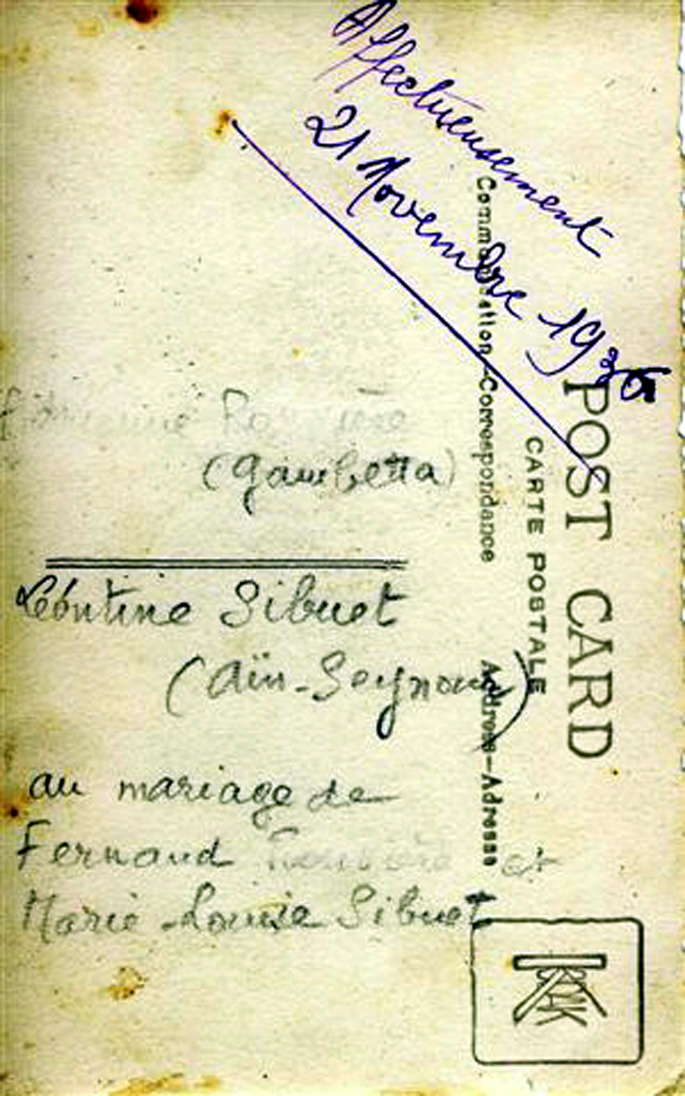 Affectueusement
21 Novembre 1936
(Gambetta)
Léontine Sibuet
(Aïn-Seynour)
au mariage de
Fernand et
Marie-Louise Sibuet
POST CARD
CARTE POSTALE
Communication–Correspondance
Address–Adresse